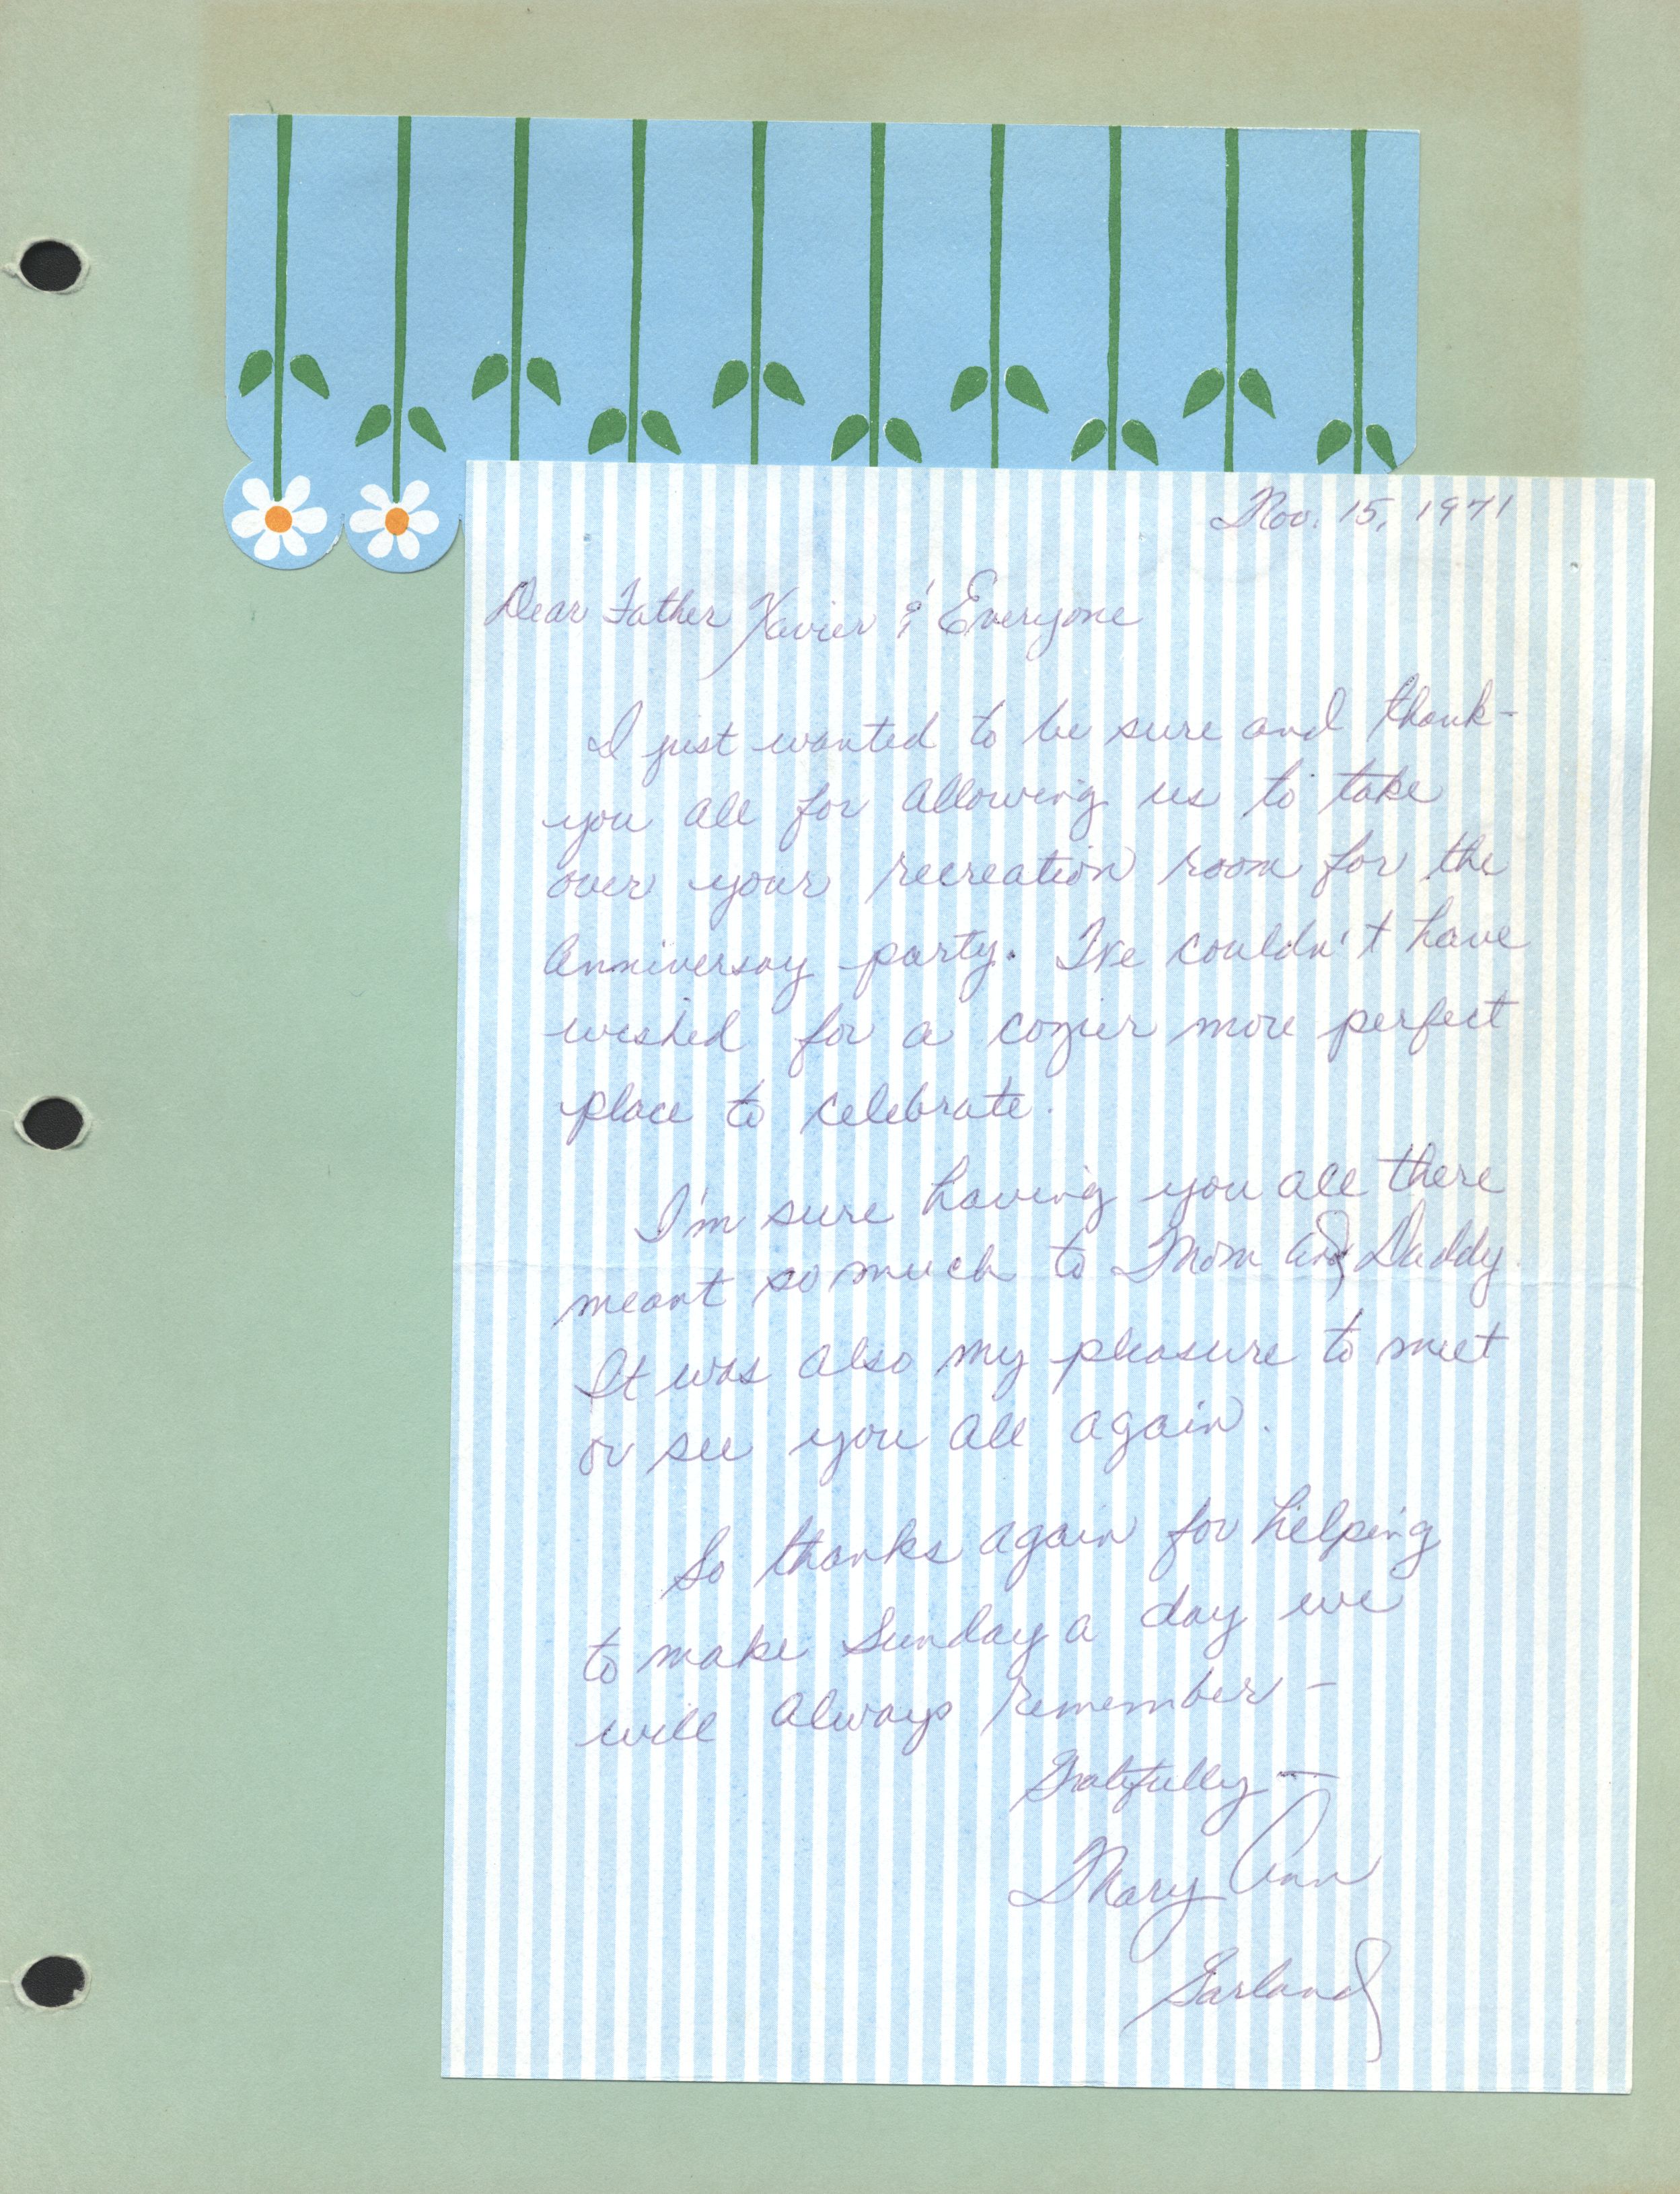 Nov. 15, 1971
Dear Father Xavier & Everyone
I just wanted to be sure and thank-
you all for allowing us to take
over your recreation room for the
Anniversay party. I've couldn't have
wished for a cozier more perfect
place to celebrate.
I'm sure having you all there
meant so much to Mom and Daddy.
It was also my pleasure to meet
or see you all again.
So thanks again for helping
to make Sunday a day we
will always remember -
Gratefully —
Mary Ann
Garland